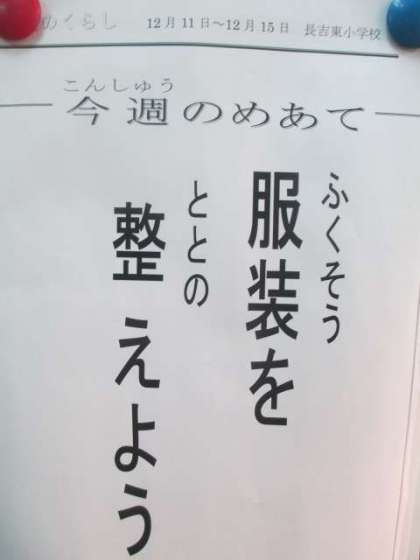 めくらし 12月11日～12月15日 長吉東小学校
こんしゅう
今週のめあて
ふくそう
服装を
ととの
整えよう